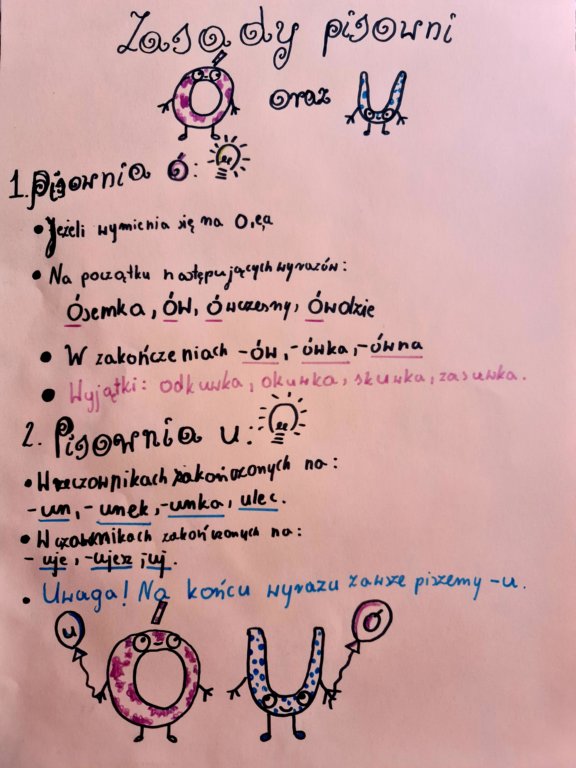 Zasady pisowni
Ó oraz U
1. Pisownia ó:
• Jeżeli wymienia się na o, e, a
• Na początku następujących wyrazów:
Ósemka, Ów, Ówczesny, Ówdzie
• W zakończeniach -ów, -ówka, -ówna
• Wyjątki: odkuwka, okuwka, skuwka, zasuwka.
2. Pisownia u:
• W rzeczownikach zakończonych na:
-un, -unek, -unka, ulec.
• W czasownikach zakończonych na:
- uje, -ujesz, uj.
• Uwaga! Na końcu wyrazu zawsze piszemy -u.
u Ó U ó